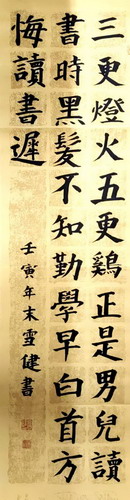 三更燈火五更鷄正是男兒讀
書時黑髮不知勤學早白首方
悔讀書遲
壬寅年末雪健書